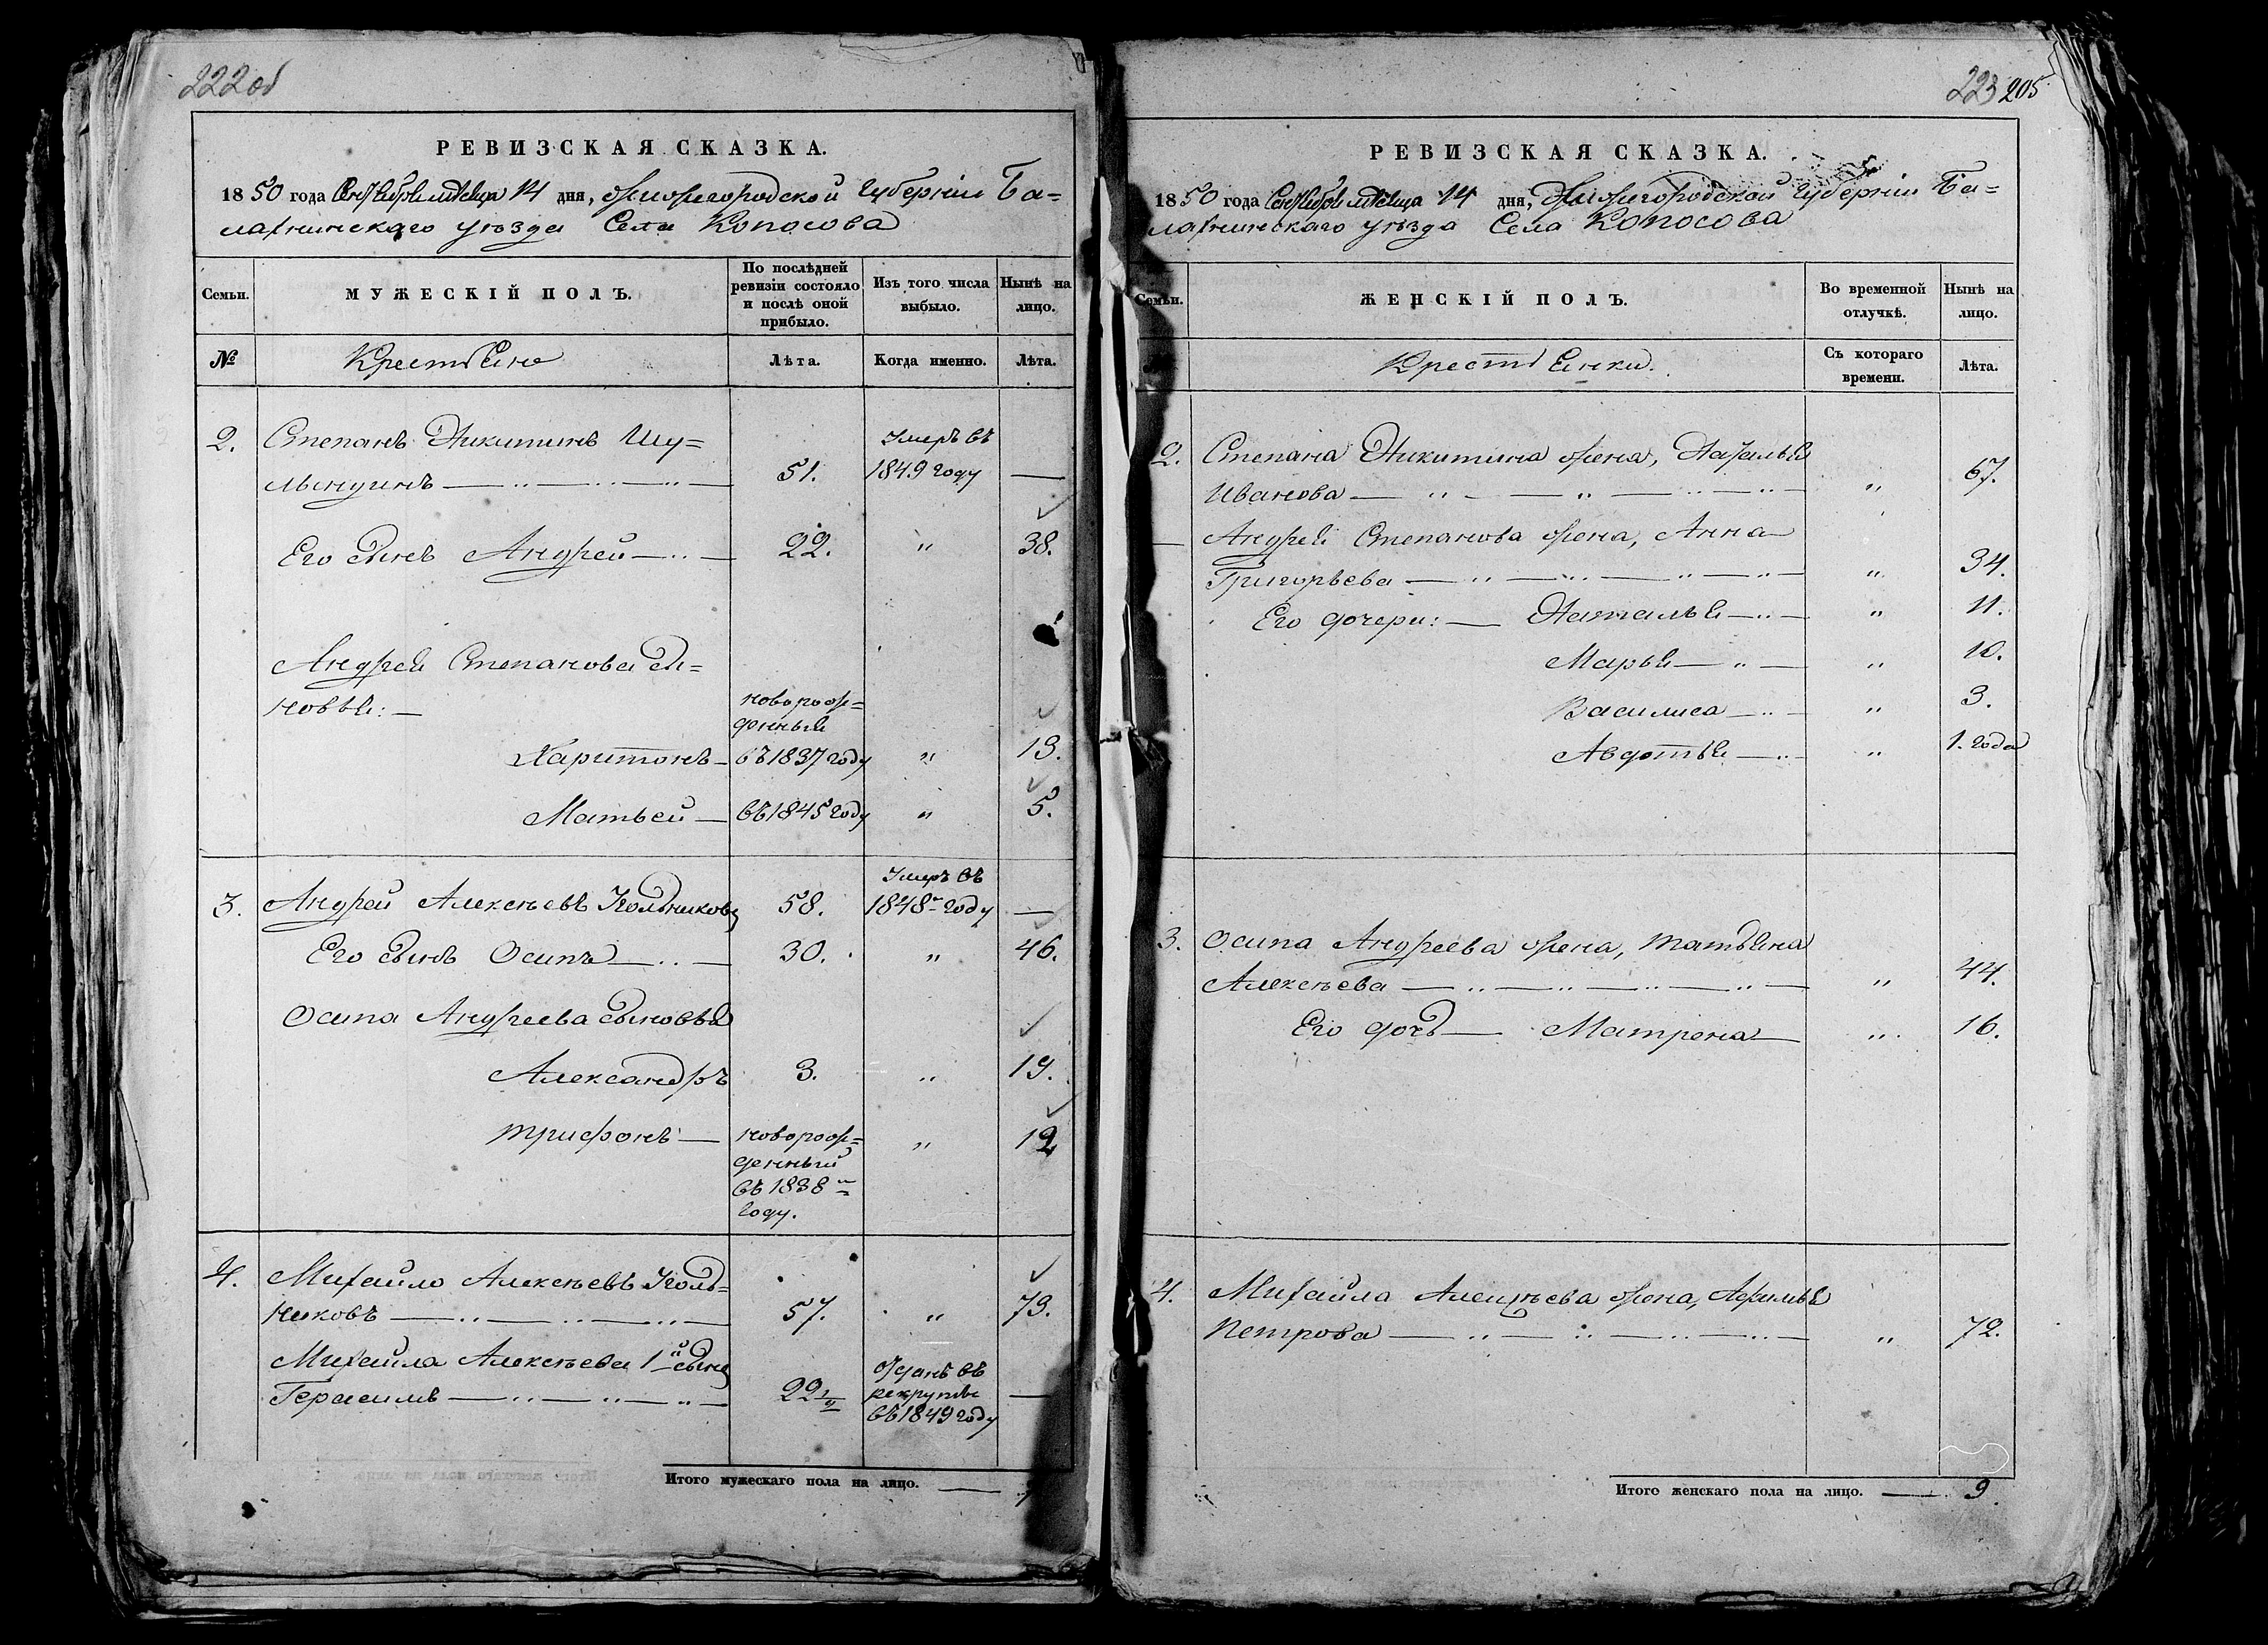 222 об
РЕВИЗСКАЯ СКАЗКА.
1850 года Сентября месяца 14 дня, Нижегородской Губернiи Ба=
лахнинскаго уѣзда Села Копосова
Семьи.
МУЖЕСКIЙ ПОЛЪ.
По послѣдней
ревизiи состояло
и послѣ оной
прибыло.
Изъ того числа
выбыло.
Нынѣ на
лицо.
№
Крестьяне
Лѣта.
Когда именно.
Лѣта.
2. Степанъ Никитинъ Шу=
51. Умеръ въ 1849 году —
Его сынъ Андрей 22. " 38.
Андрея Степанова сы=
новья:
Харитонъ новорож=
денный
въ 1837 году " 13.
Матвей въ 1845 году " 5.
3. Андрей Алексѣевъ 58. Умеръ въ
1848м году —
Его сынъ Осипъ 30. " 46.
Осипа Андреева сыновья
Александръ 3. " 19.
Трифонъ новорож=
денный
въ 1838м
году. " 12
4. Михайло Алексѣевъ
никовъ 57. " 73.
Михайла Алексѣева 1й сынъ
Герасимъ 22 1/2 отданъ въ
рекруты
въ 1849 году —
Итого мужескаго пола на лицо.
223 205
РЕВИЗСКАЯ СКАЗКА.
1850 года Сентября месяца 14 дня, Нижегородской Губернiи Ба=
лахнинскаго уѣзда Села Копосова
Семьи.
ЖЕНСКIЙ ПОЛЪ.
Во временной
отлучкѣ.
Нынѣ на
лицо.
Крестьянки.
Съ котораго
времени.
Лѣта.
2. Степана Никитина жена, Наталья
Иванова " 67.
Андрея Степанова жена, Анна
Григорьева " 34.
Его дочери: Наталья " 11.
Марья " 10.
Василиса " 3.
Авдотья " 1. года
3. Осипа Андреева жена, Татьяна
Алексѣева " 44.
Его дочь Матрена " 16.
4. Михайла Алексѣева жена, Афимья
Петрова " 72.
Итого женскаго пола на лицо. 9.